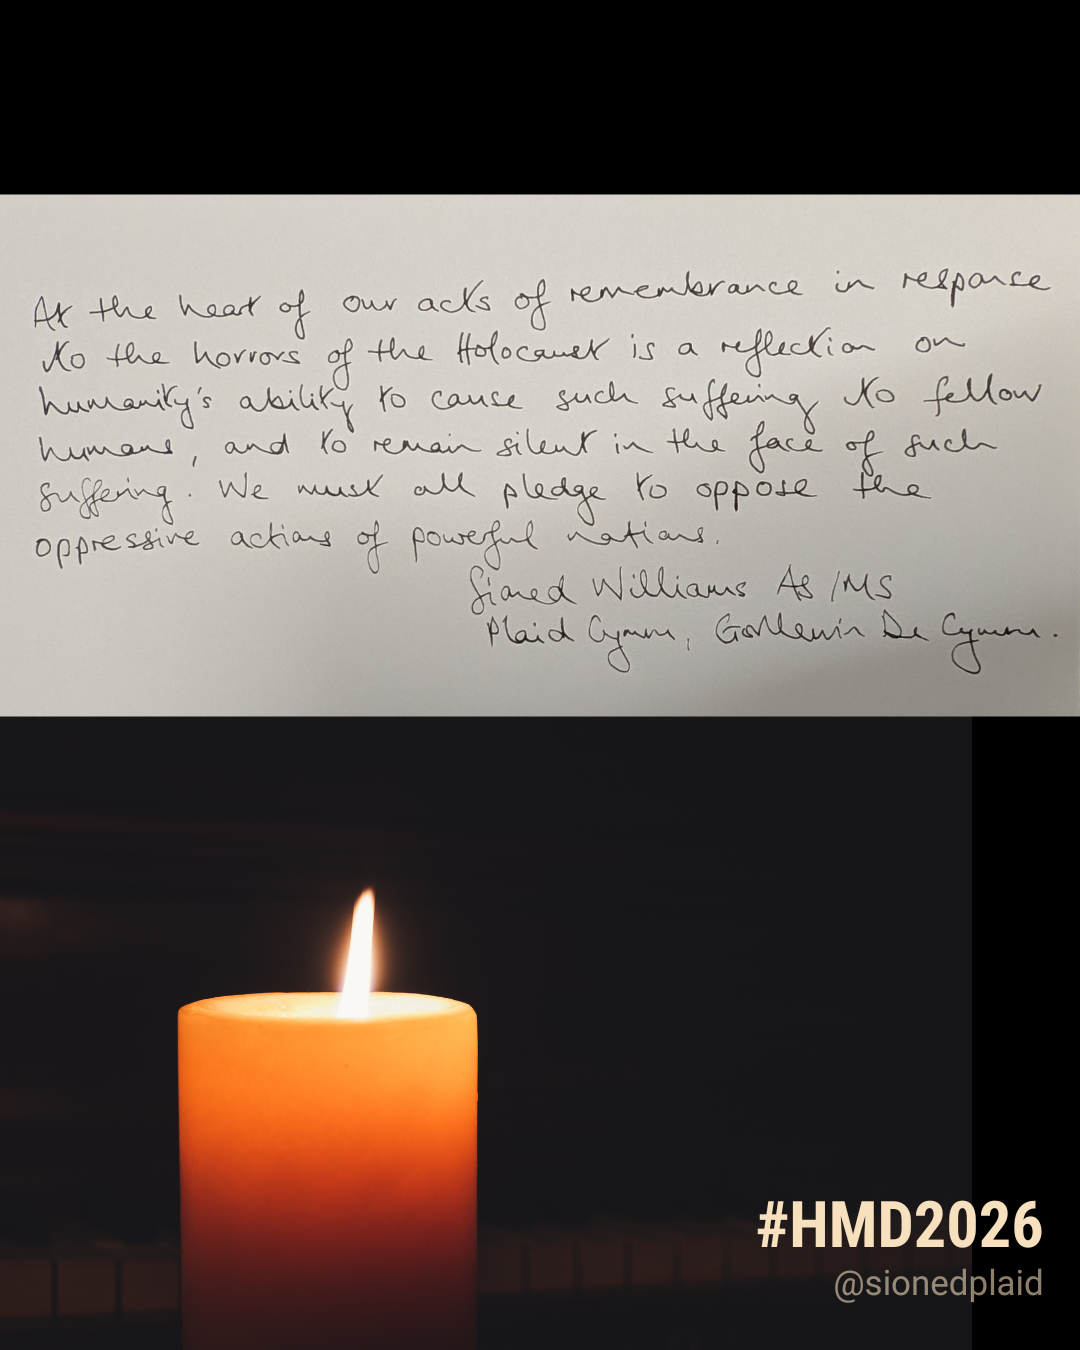 At the heart of our acts of remembrance in response
to the horrors of the Holocaust is a reflection on
humanity's ability to cause such suffering to fellow
humans, and to remain silent in the face of such
suffering. We must all pledge to oppose the
oppressive actions of powerful nations.
Sioned Williams AS/MS
Plaid Cymru, Gorllewin De Cymru.
#HMD2026
@sionedplaid